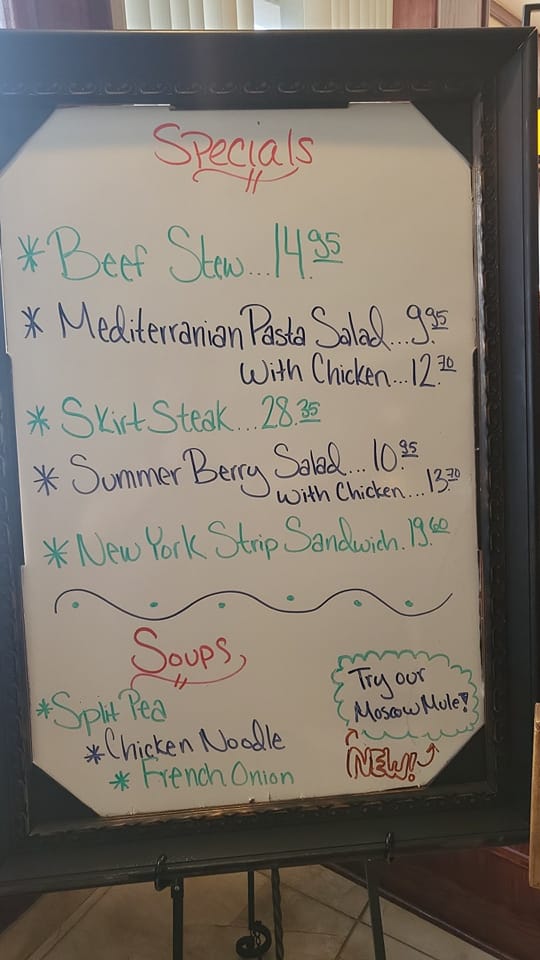 Specials
* Beef Stew...14.95
* Mediterranian Pasta Salad...9.95
With Chicken...12.70
* Skirt Steak...28.35
* Summer Berry Salad...10.95
With Chicken...13.70
* New York Strip Sandwich.19.60
Soups
* Split Pea
* Chicken Noodle
* French Onion
Try our
Moscow Mule!
NEW!